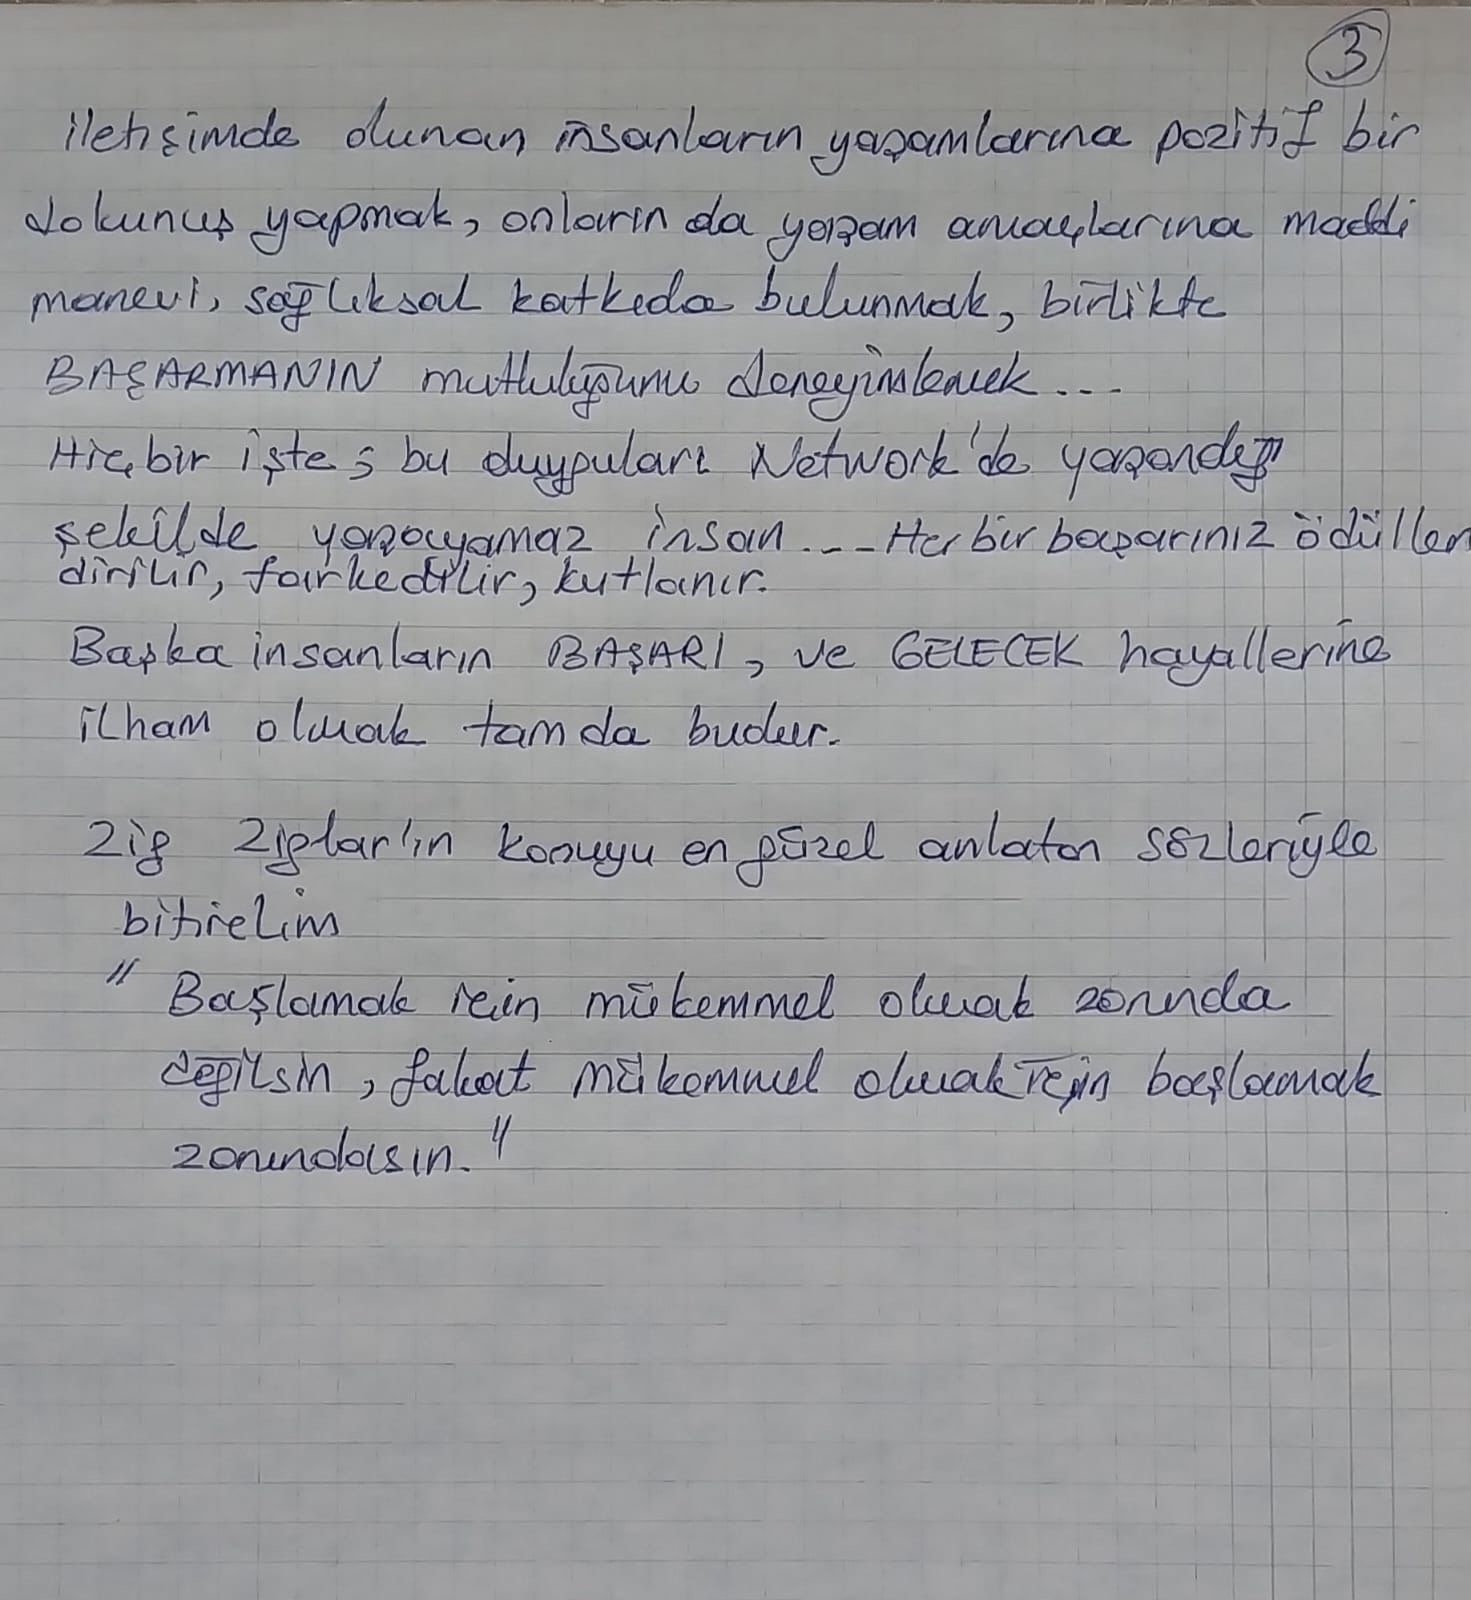 3
iletişimde olunan insanların yaşamlarına pozitif bir
dokunuş yapmak, onların da yaşam amaçlarına maddi
manevi, sağlıksal katkıda bulunmak, birlikte
BAŞARMANIN mutluluğunu deneyimlemek...
Hiç bir işte; bu duyguları Network'de yaşandığı
şekilde yaşayamaz insan... Her bir başarınız ödüllen
dirilir, farkedilir, kutlanır.
Başka insanların BAŞARI, ve GELECEK hayallerine
ilham olmak tam da budur.
Zig Ziglar'ın konuyu en güzel anlatan sözleriyle
bitirelim
"Başlamak için mükemmel olmak zorunda
değilsin, fakat mükemmel olmak için başlamak
zorundasın."